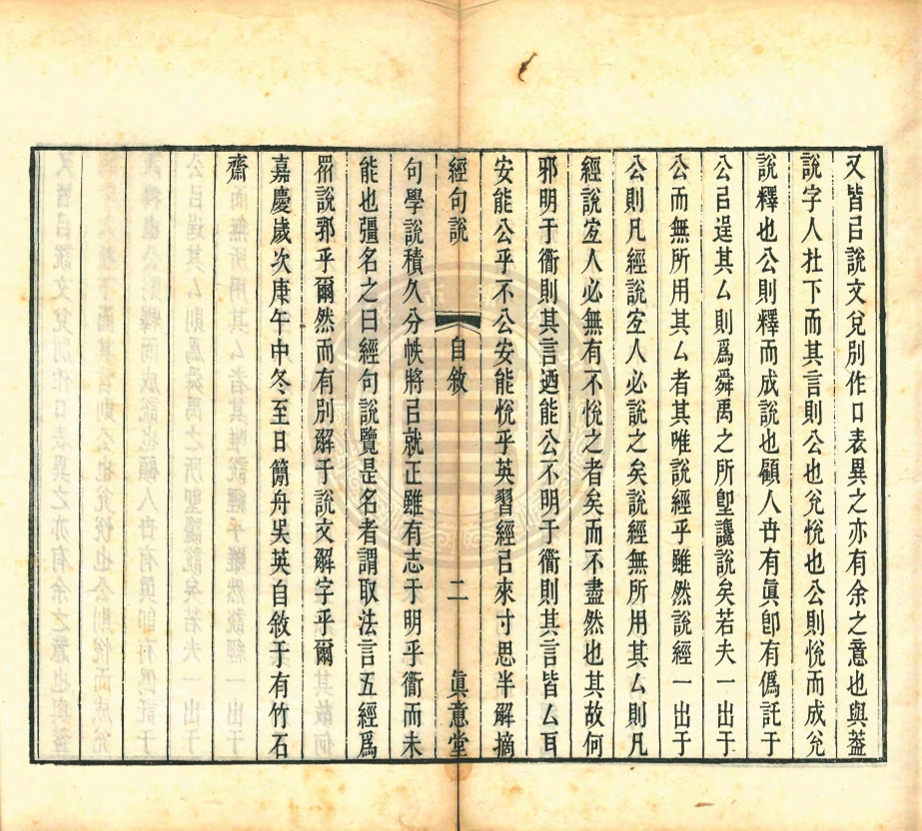 又皆㠯說文兌別作口表異之亦有余之意也與葢
說字人杜下而其言則公也兊悅也公則悅而成兊
說釋也公則釋而成說也顧人卋有眞卽有僞託于
公㠯逞其厶則爲舜禹之所堲讒說矣若夫一出于
公而無所用其厶者其唯說經乎雖然說經一出于
公則凡經說宐人必說之矣說經無所用其厶則凡
經說宐人必無有不悅之者矣而不盡然也其故何
邪明于衜則其言迺能公不明于衜則其言皆厶耳
安能公乎不公安能悅乎英習經㠯來寸思半解摘
經句說 自敘 二 眞意堂
句學說積久分帙將㠯就正雖有志于明乎衜而未
能也彊名之曰經句說覽是名者謂取法言五經爲
眾說郛乎爾然而有別解于說文解字乎爾
嘉慶歲次庚午中冬至日簡舟吳英自敘于有竹石
齋